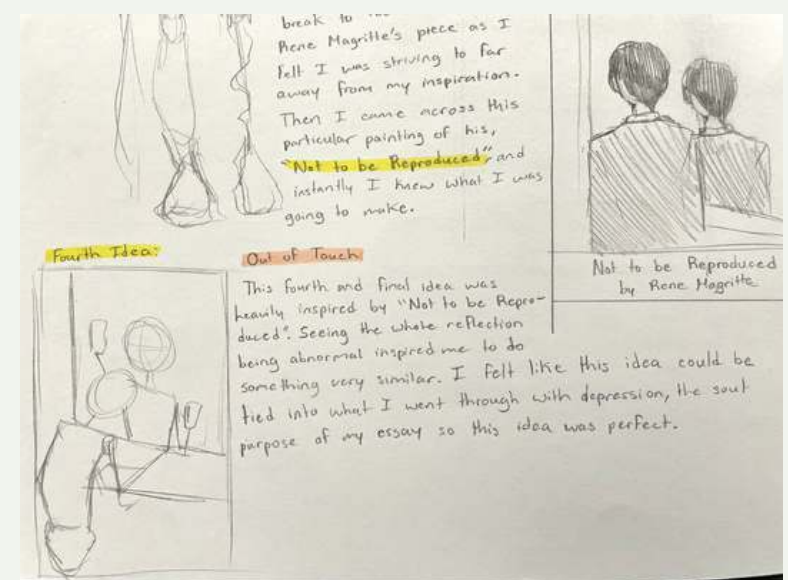 break to
Rene Magritte's piece as I
felt I was striving to far
away from my inspiration.
Then I came across this
particular painting of his,
"Not to be Reproduced", and
instantly I knew what I was
going to make.
Not to be Reproduced
by Rene Magritte
Fourth Idea:
Out of Touch
This fourth and final idea was
heavily inspired by "Not to be Repro-
duced". Seeing the whole reflection
being abnormal inspired me to do
something very similar. I felt like this idea could be
tied into what I went through with depression, the sout
purpose of my essay so this idea was perfect.